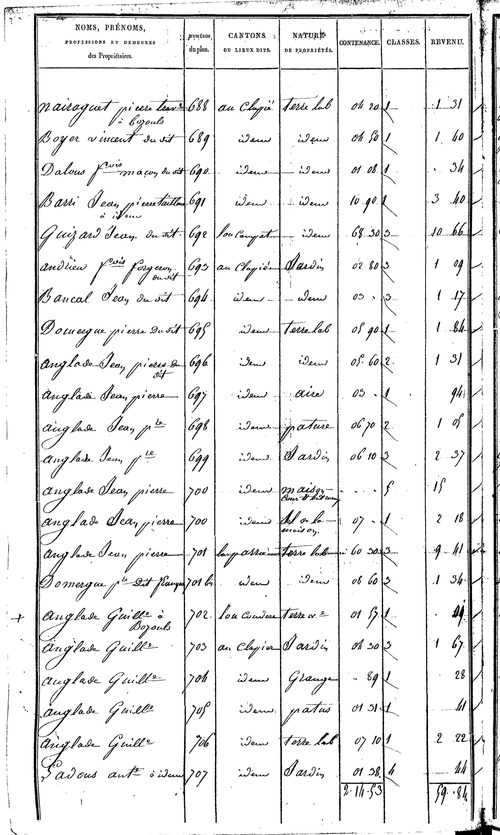 NOMS, PRÉNOMS, PROFESSIONS ET DEMEURES des Propriétaires. NUMÉROS du plan. CANTONS OU LIEUX DITS. NATURE DE PROPRIÉTÉS. CONTENANCE. CLASSES. REVENU.
nairaguet pierre à bozouls 688 au Clapié terre lab 04 20 1 1 31
Boyer vincent du dit 689 idem idem 04 50 1 1 40
Dalous fcois maçon du dit 690 idem idem 01 08 1 34
Barri Jean pierre tailleur à idem 691 idem idem 10 90 1 3 40
Guizard Jean du dit 692 lou Campet idem 68 30 3 10 66
andrieu fcois forgeron du dit 693 au Clapié Jardin 02 80 3 1 09
Bancal Jean du dit 694 idem idem 03 . 3 1 17
Domergue pierre du dit 695 idem terre lab 05 90 1 1 84
anglade Jean pierre du dit 696 idem idem 05 60 2 1 31
anglade Jean pierre 697 idem aire 03 - 1 94
anglade Jean pre 698 idem pature 06 70 2 1 05
anglade Jean pre 699 idem Jardin 06 10 3 2 37
anglade Jean pierre 700 idem maison 5 15
anglade Jean pierre 700 idem Sol de la maison 07 - 1 2 18
anglade Jean pierre 701 terre lab 60 30 3 9 41
Domergue pre dit 701 b idem idem 08 60 3 1 34
anglade Guille à Bozouls 702 lou Couderc terre 01 57 1 49
anglade Guille 703 au Clapier Jardin 04 30 3 1 67
anglade Guille 704 idem Grange - 89 1 28
anglade Guille 705 idem patus 01 31 1 41
anglade Guille 706 idem terre lab 07 10 1 2 22
Ladous ante à idem 707 idem Jardin 01 38 4 44
2 14 53 59 84